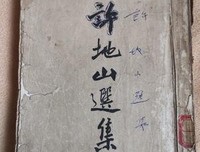 許地山選集
許地山選集